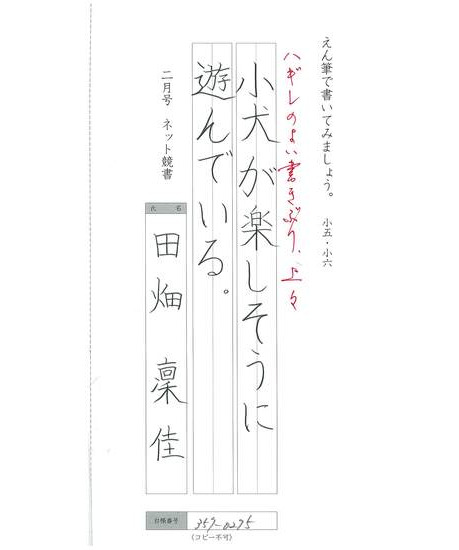 えん筆で書いてみましょう。 小五・小六
ハギレのよい書きぶり、上々
小犬が楽しそうに
遊んでいる。
二月号 ネット競書
氏名
田畑 凜佳
台帳番号
359-0295
(コピー不可)